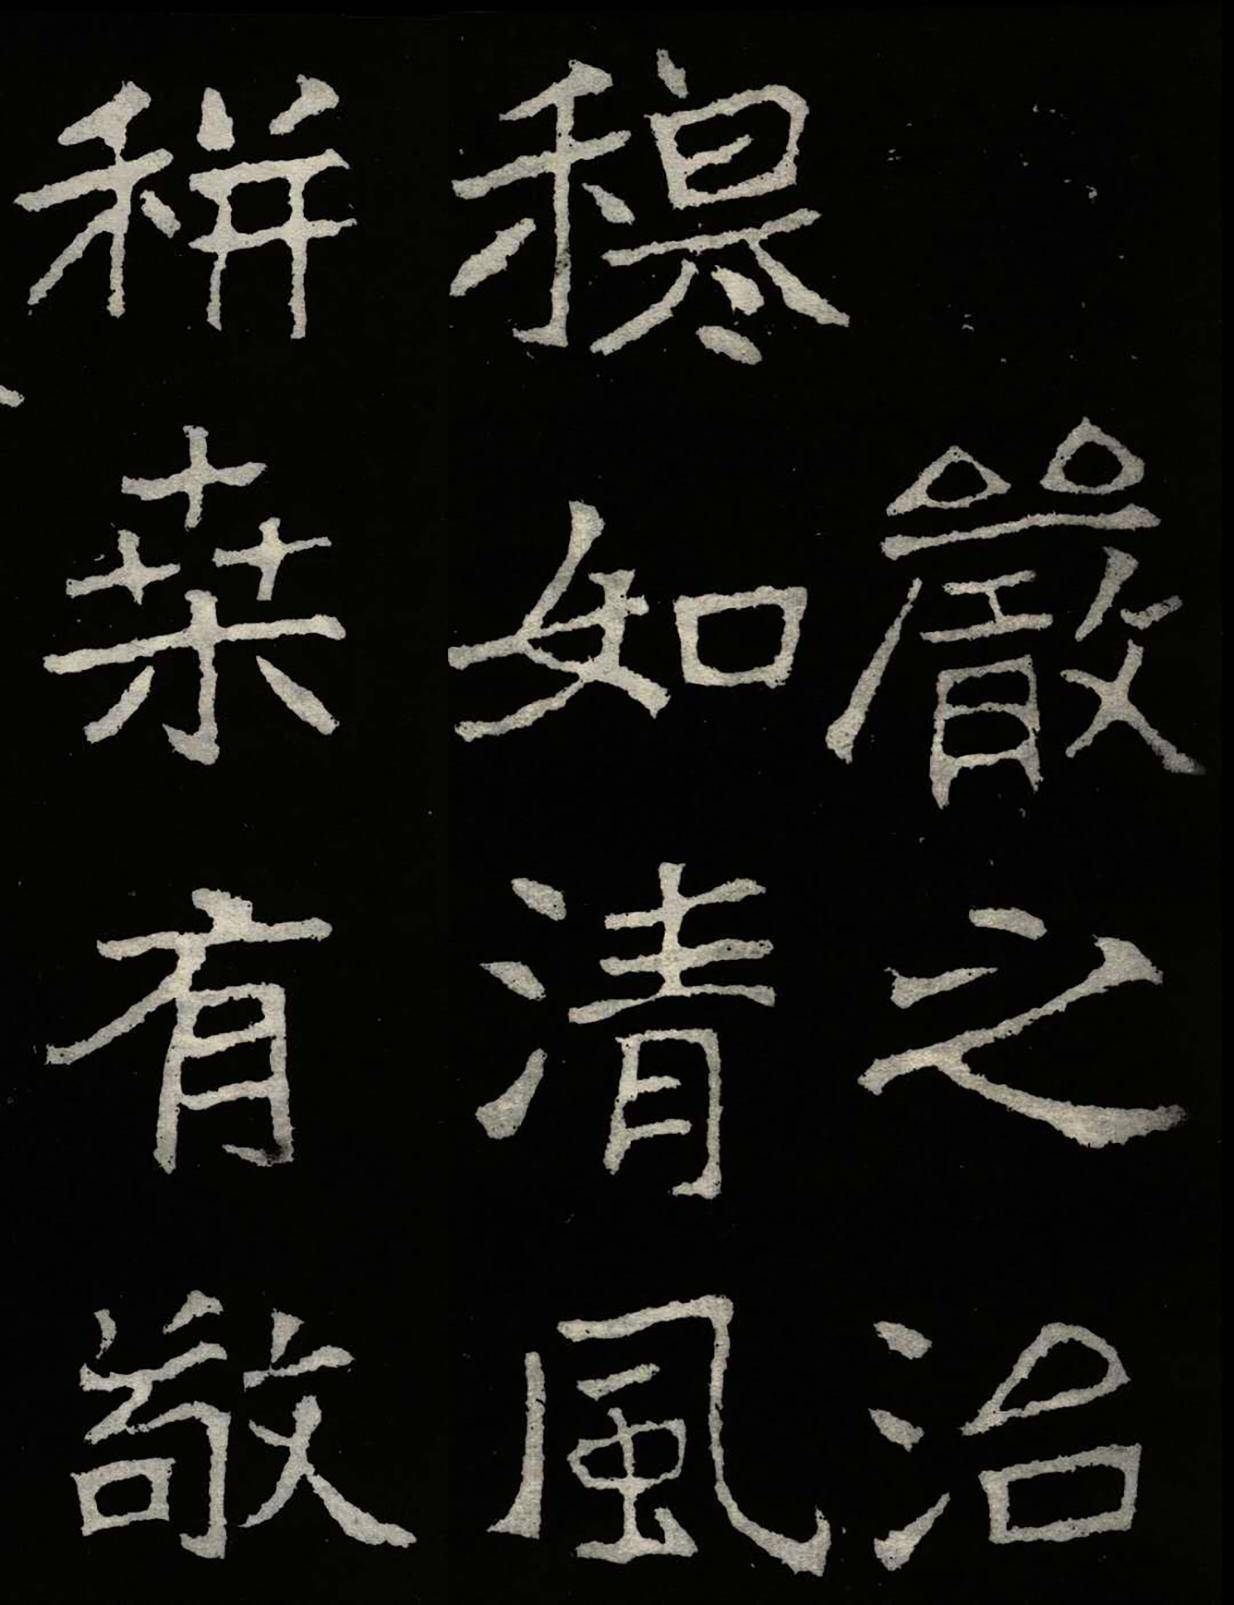 嚴之治
穆如清風
耕桒有敬